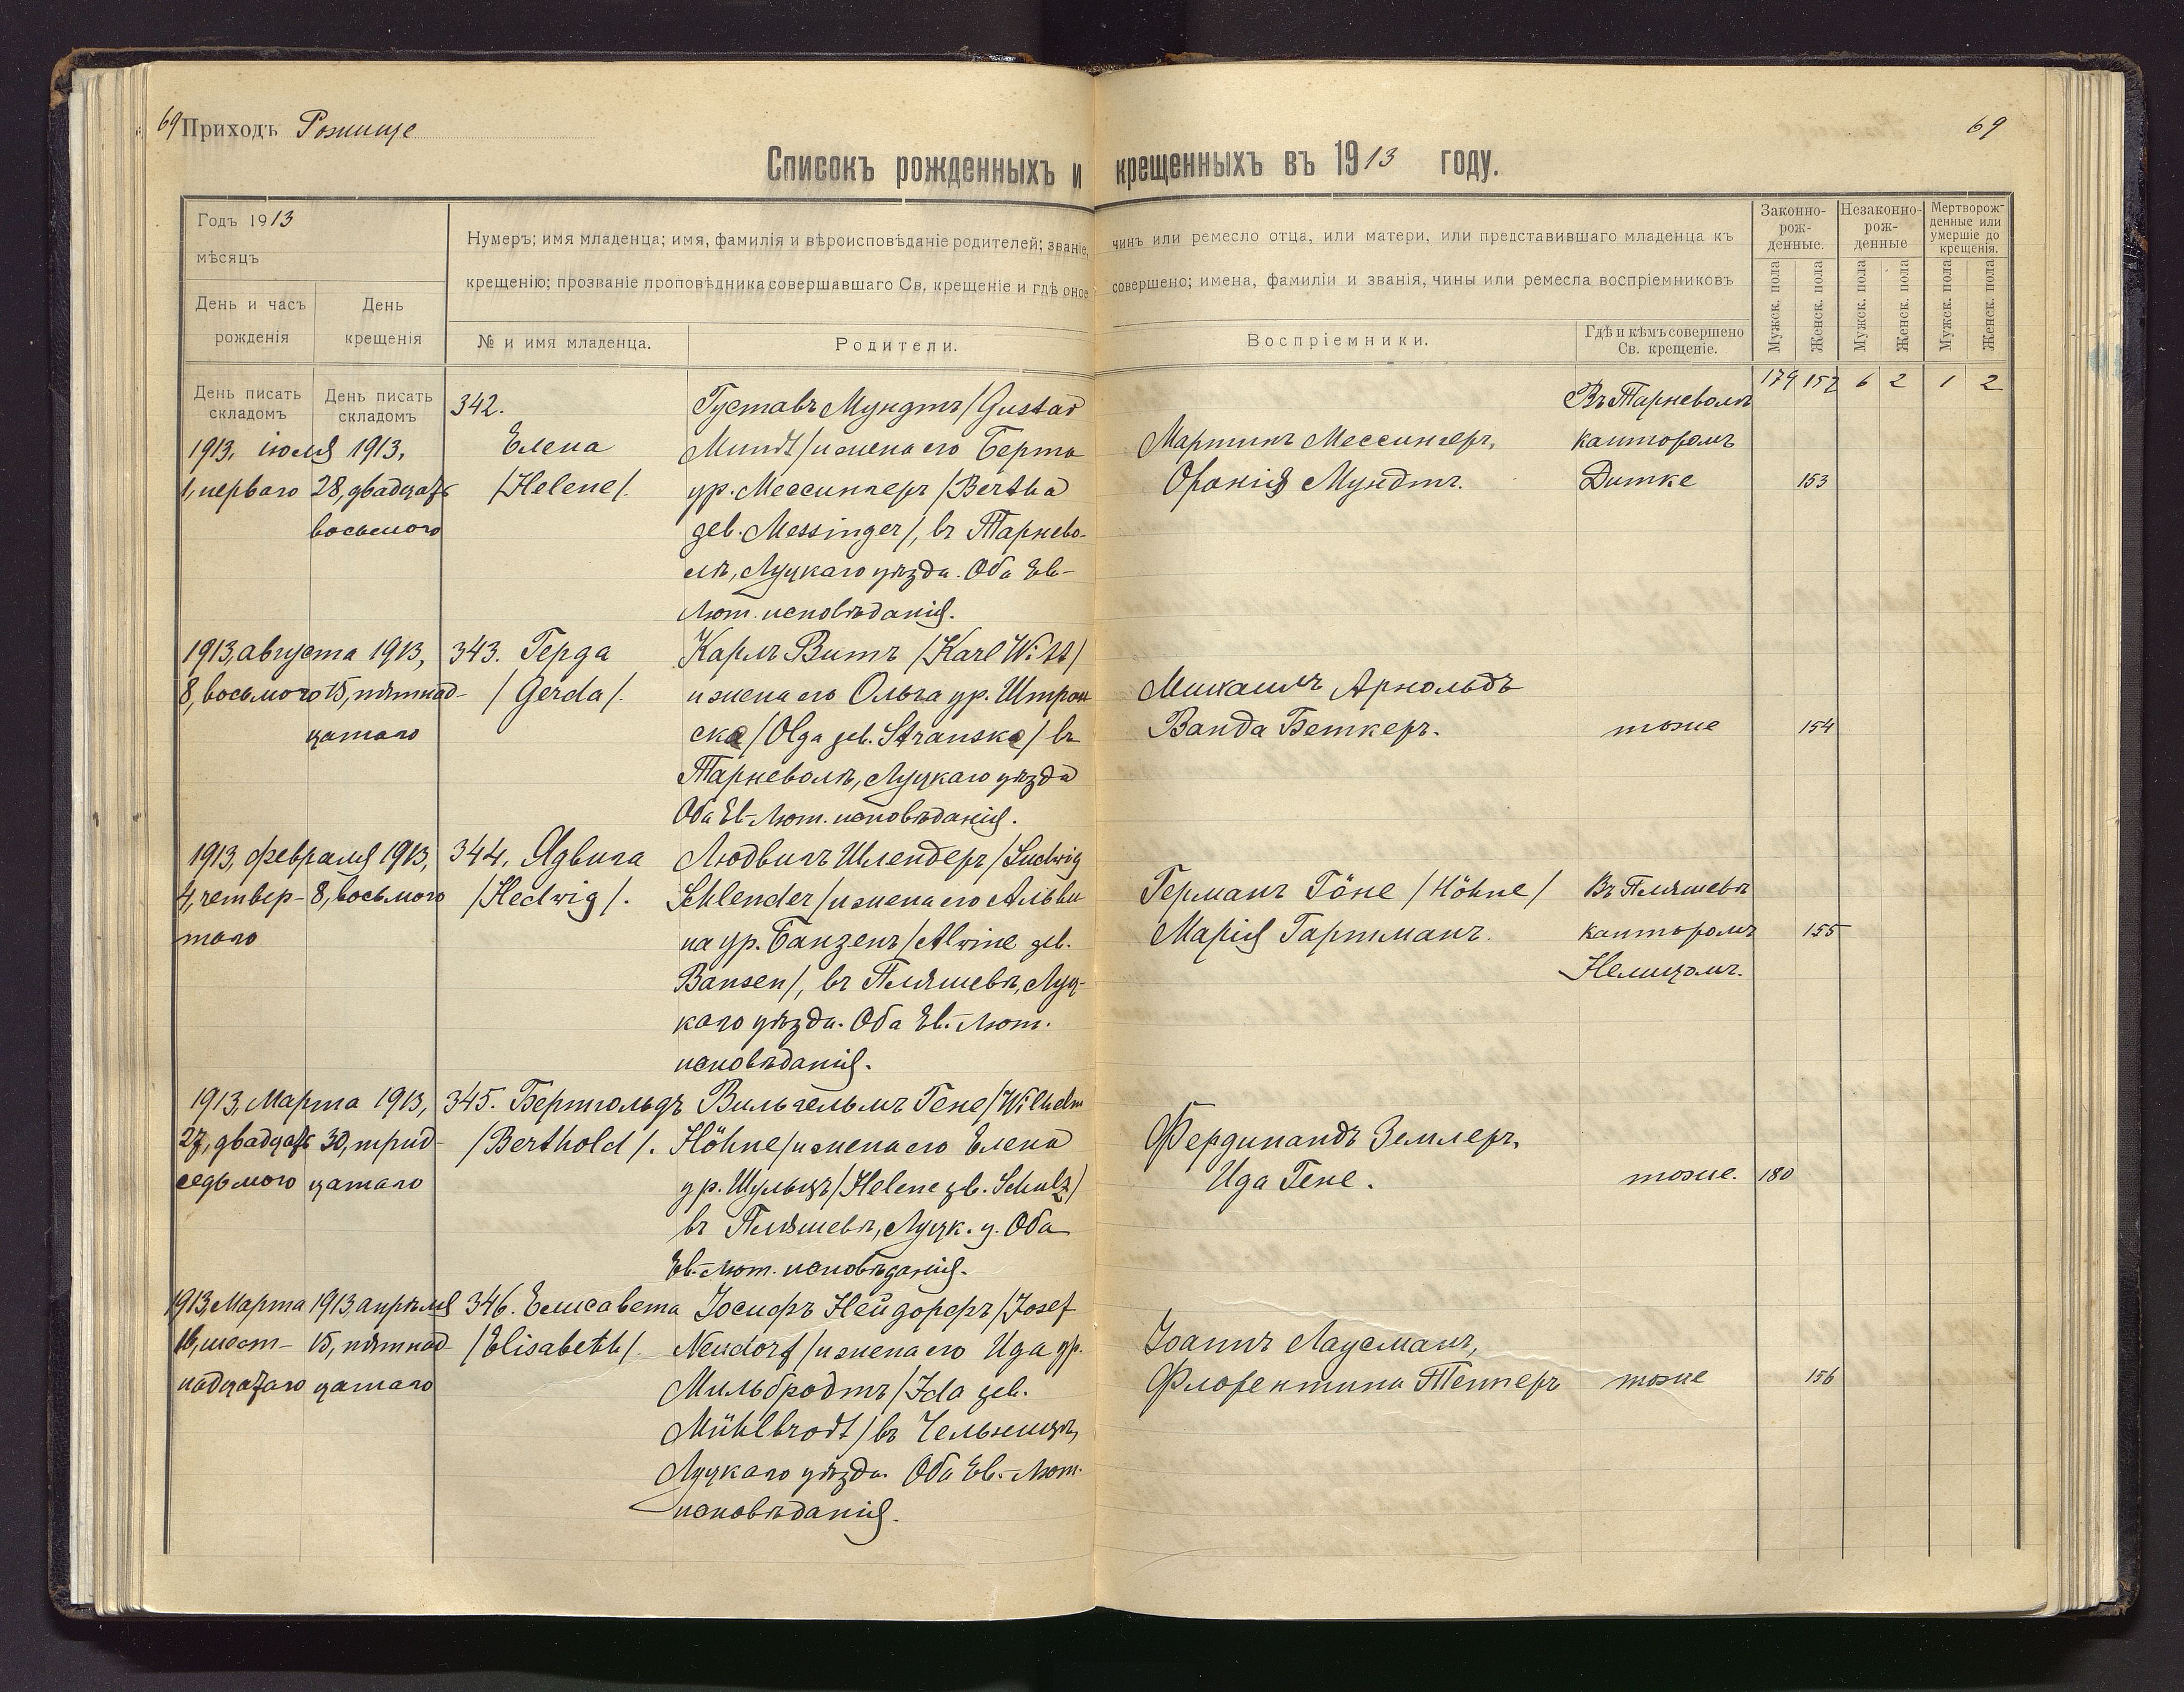 69 Приходъ Рожище
69
Списокъ рожденныхъ и крещенныхъ въ 1913 году.
Годъ 1913
мѣсяцъ
День и часъ рожденія
День крещенія
Нумеръ; имя младенца; имя, фамилія и вѣроисповѣданіе родителей; званіе, чинъ или ремесло отца, или матери, или представившаго младенца къ
крещенію; прозваніе проповѣдника совершавшаго Св. крещеніе и гдѣ оное совершено; имена, фамиліи и званія, чины или ремесла воспріемниковъ
№ и имя младенца.
Родители.
Воспріемники.
Гдѣ и кѣмъ совершено
Св. крещеніе.
Законно-
рож-
денные.
Незаконно-
рож-
денные
Мертворож-
денные или
умершіе до
крещенія.
Мужск. пола
Женск. пола
Мужск. пола
Женск. пола
Мужск. пола
Женск. пола
День писать
складомъ
День писать
складомъ
179 152 6 2 1 2
1913, іюля 1913,
1, перваго 28, двадцать
восьмого
342.
Елена
/Helene/.
Густавъ Мундтъ /Gustav
Mundt/ и жена его Берта
ур. Мессингеръ /Bertha
geb. Messinger/, въ Тарнево-
лѣ, Луцкаго уѣзда. Оба Ев-
Лют. исповѣданія.
Мартинъ Мессингеръ,
Фронія Мундтъ.
Въ Тарневолѣ
канторомъ
Дитке
153
1913, августа 1913,
8, восьмого 15, пятнад-
цатаго
343. Герда
/Gerda/.
Карлъ Витъ /Karl Witt/
и жена его Ольга ур. Штран
ске /Olga geb. Stranske/ въ
Тарневолѣ, Луцкаго уѣзда
Оба Ев-Лют. исповѣданія.
Михаилъ Арнольдъ
Ванда Беткеръ.
тоже
154
1913, февраля 1913,
4, четвер- 8, восьмого
таго
344. Ядвига
/Hedwig/.
Людвигъ Шлендеръ /Ludwig
Schlender/ и жена его Альви
на ур. Банзенъ /Alwine geb.
Bansen/, въ Пляшевѣ, Луц-
каго уѣзда. Оба Ев.-Лют.
исповѣданія.
Германъ Гöне /Höhne/
Марія Гартманъ.
Въ Пляшевѣ
канторомъ
155
1913, Марта 1913,
27, двадцать 30, трид-
седьмого цатаго
345. Бертгольдъ
/Berthold/.
Вильгельмъ Гене /Wilhelm
Höhne/ и жена его Елена
ур. Шульцъ /Helene gb. Schulz/
въ Пляшевѣ, Луцк. у. Оба
Ев.-Лют. исповѣданія.
ФердинандъЗемлеръ,
Ида Гене.
тоже.
180
1913, Марта 1913 апрѣля
16, шест- 15, пятнад-
надцатаго цатаго
346. Елисавета
/Elisabeth/.
Іосифъ Нейдорфъ /Josef
Neudorf/ и жена его Ида ур.
Мильбродтъ /Ida geb.
Mühlbrodt/ въ Чельницѣ,
Луцкаго уѣзда. Оба Ев.-Лют.
исповѣданія.
Іоаннъ Лаусманъ,
Флорентина
тоже
156